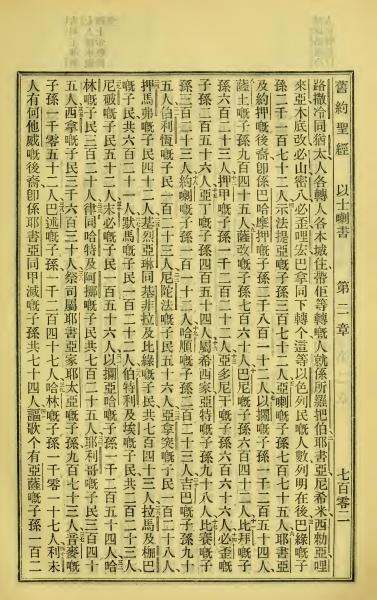 舊約聖經　以士喇書　第二章　七百零二
路撒冷同猶太人各轉人各本城往帶佢等轉嘅人就係所羅把伯耶書亞尼希米西勑亞哩
來亞木底改必山密八必歪哩宏巴拿同下轉个這等以色列民嘅人數列明在後巴綠嘅子
孫二千一百七十二人示法提亞嘅子孫三百七十二人亞喇嘅子孫七百七十五人耶書亞
及約押嘅後裔卽係巴哈摩押嘅子孫二千八百一十二人以攔嘅子孫一千二百五十四人
薩土嘅子孫九百四十五人薩改嘅子孫七百六十人巴尼嘅子孫六百四十二人比拜嘅子
孫六百二十三人押甲嘅子孫一千二百二十二人亞多尼干嘅子孫六百六十六人必歪嘅
子孫二千零五十六人亞丁嘅子孫四百五十四人屬希西家亞特嘅子孫九十八人比賽嘅子
孫三百二十三人約喇嘅子孫一百一十二人哈順嘅子孫二百二十三人吉巴嘅子孫九十
五人伯利恆嘅子民一百二十三人尼陀法嘅子民五十六人亞拿突嘅子民一百二十八人
押馬弗嘅子民四十二人基烈亞琳同基非拉及比綠嘅子民共七百四十三人拉馬及枷巴
嘅子民共六百二十一人默馬嘅子民一百二十二人伯特利及埃嘅子民共二百二十三人
尼破嘅子民五十二人末必嘅子民一百五十六人以攔亞哈嘅子民一千二百五十四人哈
林嘅子民三百二十人律同哈特及阿挪嘅子民共七百二十五人耶利哥嘅子民三百四十
五人西拿嘅子民三千六百三十人祭司屬耶書亞家耶太亞嘅子孫九百七十三人音麥嘅
子孫一千零五十二人巴述嘅子孫一千二百四十七人哈林嘅子孫一千零一十七人利未
人有何他威嘅後裔卽係耶書亞同甲滅嘅子孫共七十四人謳歌个有亞薩嘅子孫一百二